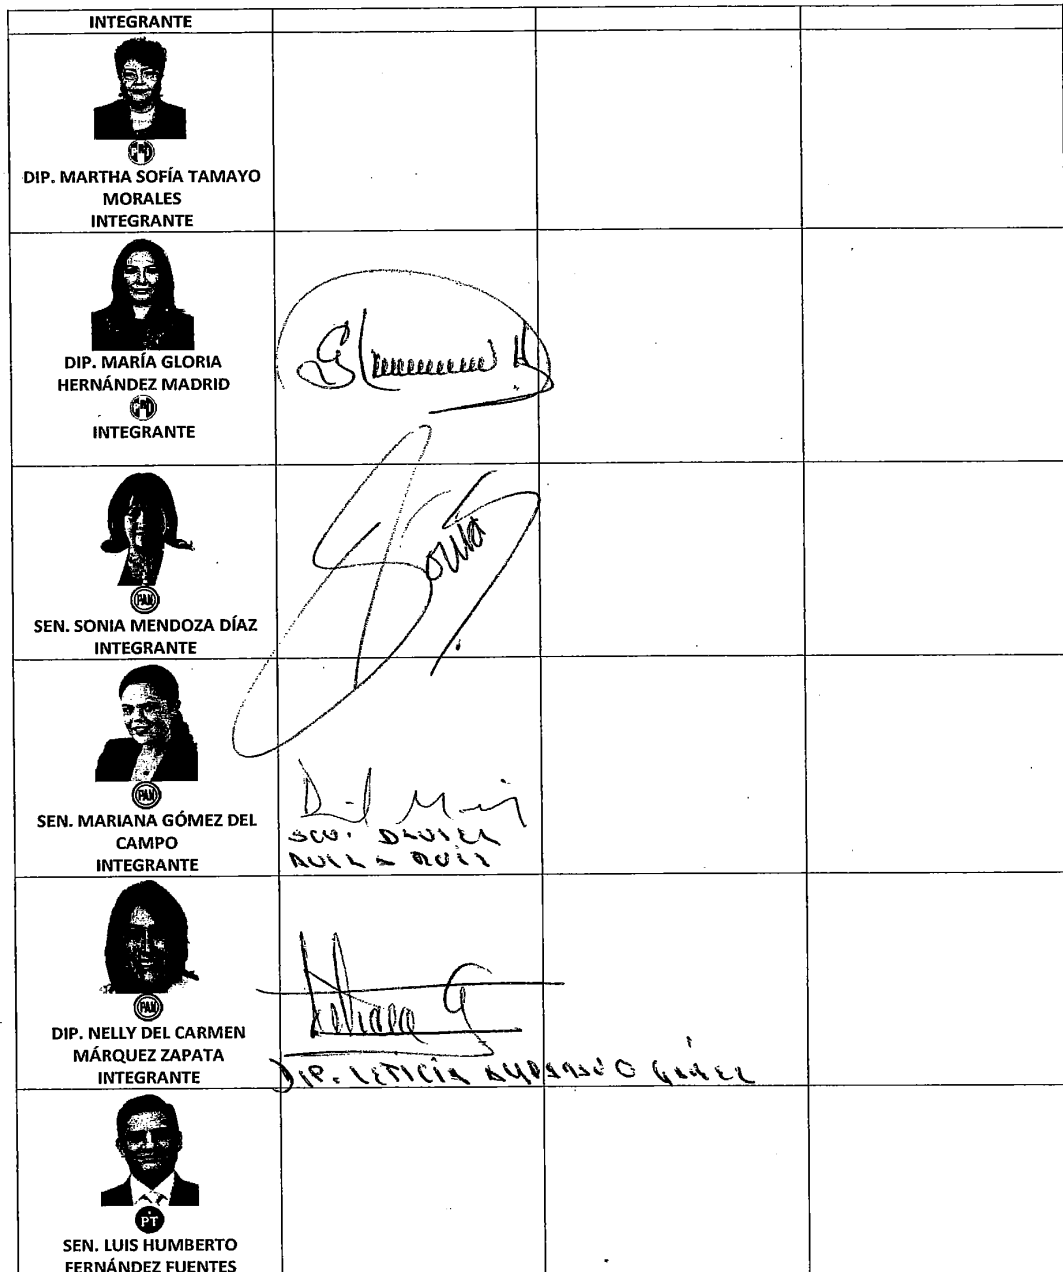 INTEGRANTE
PRI
DIP. MARTHA SOFÍA TAMAYO
MORALES
INTEGRANTE
DIP. MARÍA GLORIA
HERNÁNDEZ MADRID
PRI
INTEGRANTE
Sonia
PAN
SEN. SONIA MENDOZA DÍAZ
INTEGRANTE
PAN
SEN. MARIANA GÓMEZ DEL
CAMPO
INTEGRANTE
PAN
DIP. NELLY DEL CARMEN
MÁRQUEZ ZAPATA
INTEGRANTE
DIP. LETICIA
PT
SEN. LUIS HUMBERTO
FERNÁNDEZ FUENTES